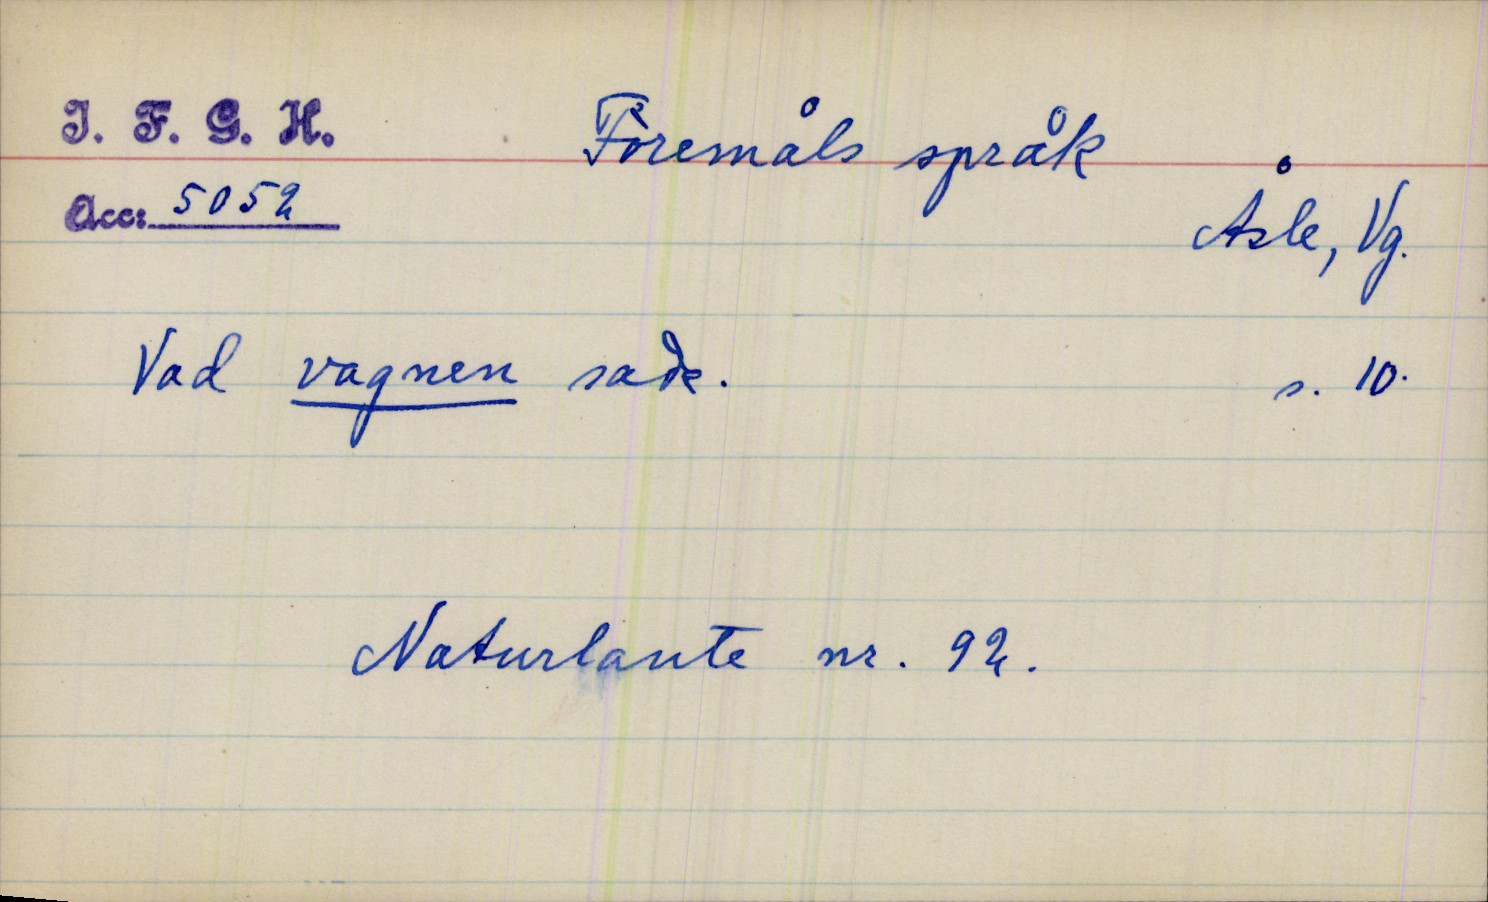 I. F. G. H.
Föremåls språk
Acc: 5052
Åsle, Vg.
Vad vagnen sade. s. 10.
Naturlante nr. 92.